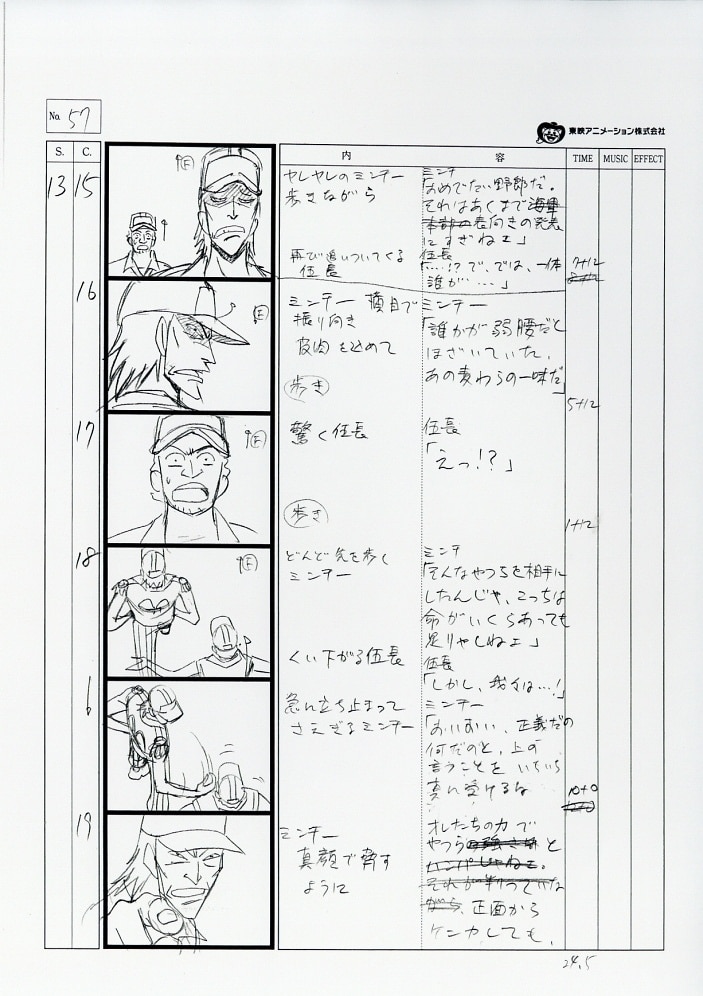 No. 57
東映アニメーション株式会社
S. C. 内 容 TIME MUSIC EFFECT
13 15
F
ヤレヤレのミンチー
歩きながら
再び追いついてくる
伍長
ミンチ
「おめでたい野郎だ。
それはあくまで海軍
本部の表向きの発表
にすぎねェ」
伍長
「……!? で、では、一体
誰が……」
7+12
16
F
ミンチー 横目で
振り向き
皮肉を込めて
歩き
ミンチー
「誰かが弱腰だと
ほざいていた、
あの麦わらの一味だ」
5+12
17
F
驚く伍長
歩き
伍長
「えっ!?」
1+12
18
F
どんどん先を歩く
ミンチー
くい下がる伍長
ミンチ
「そんなやつらを相手に
したんじゃ、こっちは
命がいくらあっても
足りやしねェ」
伍長
「しかし、我々は…!」
急に立ち止まって
さえぎるミンチー
ミンチー
「おいおい、正義だの
何だのと、上の
言うことをいちいち
真に受けるな…
10+0
19
ミンチー
真顔で脅す
ように
オレたちの力で
やつらの強さ と
ハンパじゃねェ。
それが判っていな
がら、正面から
ケンカしても、
24.5